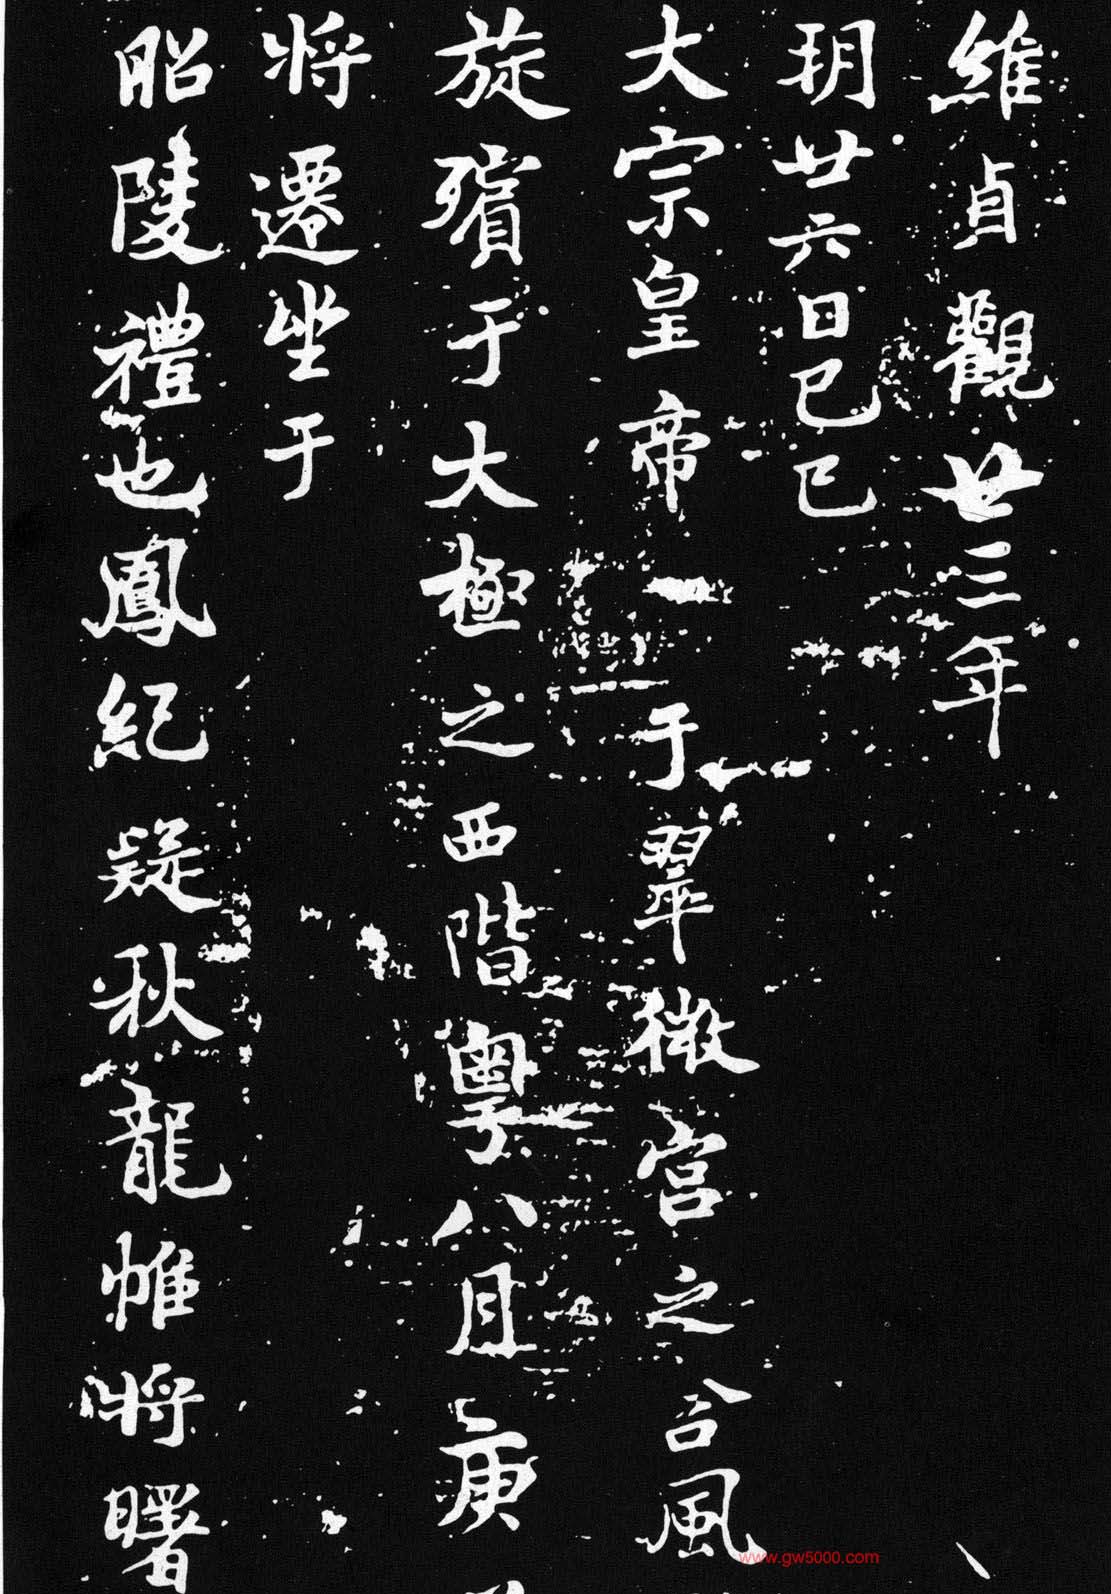 維貞觀廿三年
朔廿六日己巳
大宗皇帝于翠微宮之含風
旋殯于大極之西階粤八月庚
将遷坐于
昭陵禮也鳳紀疑秋龍帷将曙
www.gw5000.com